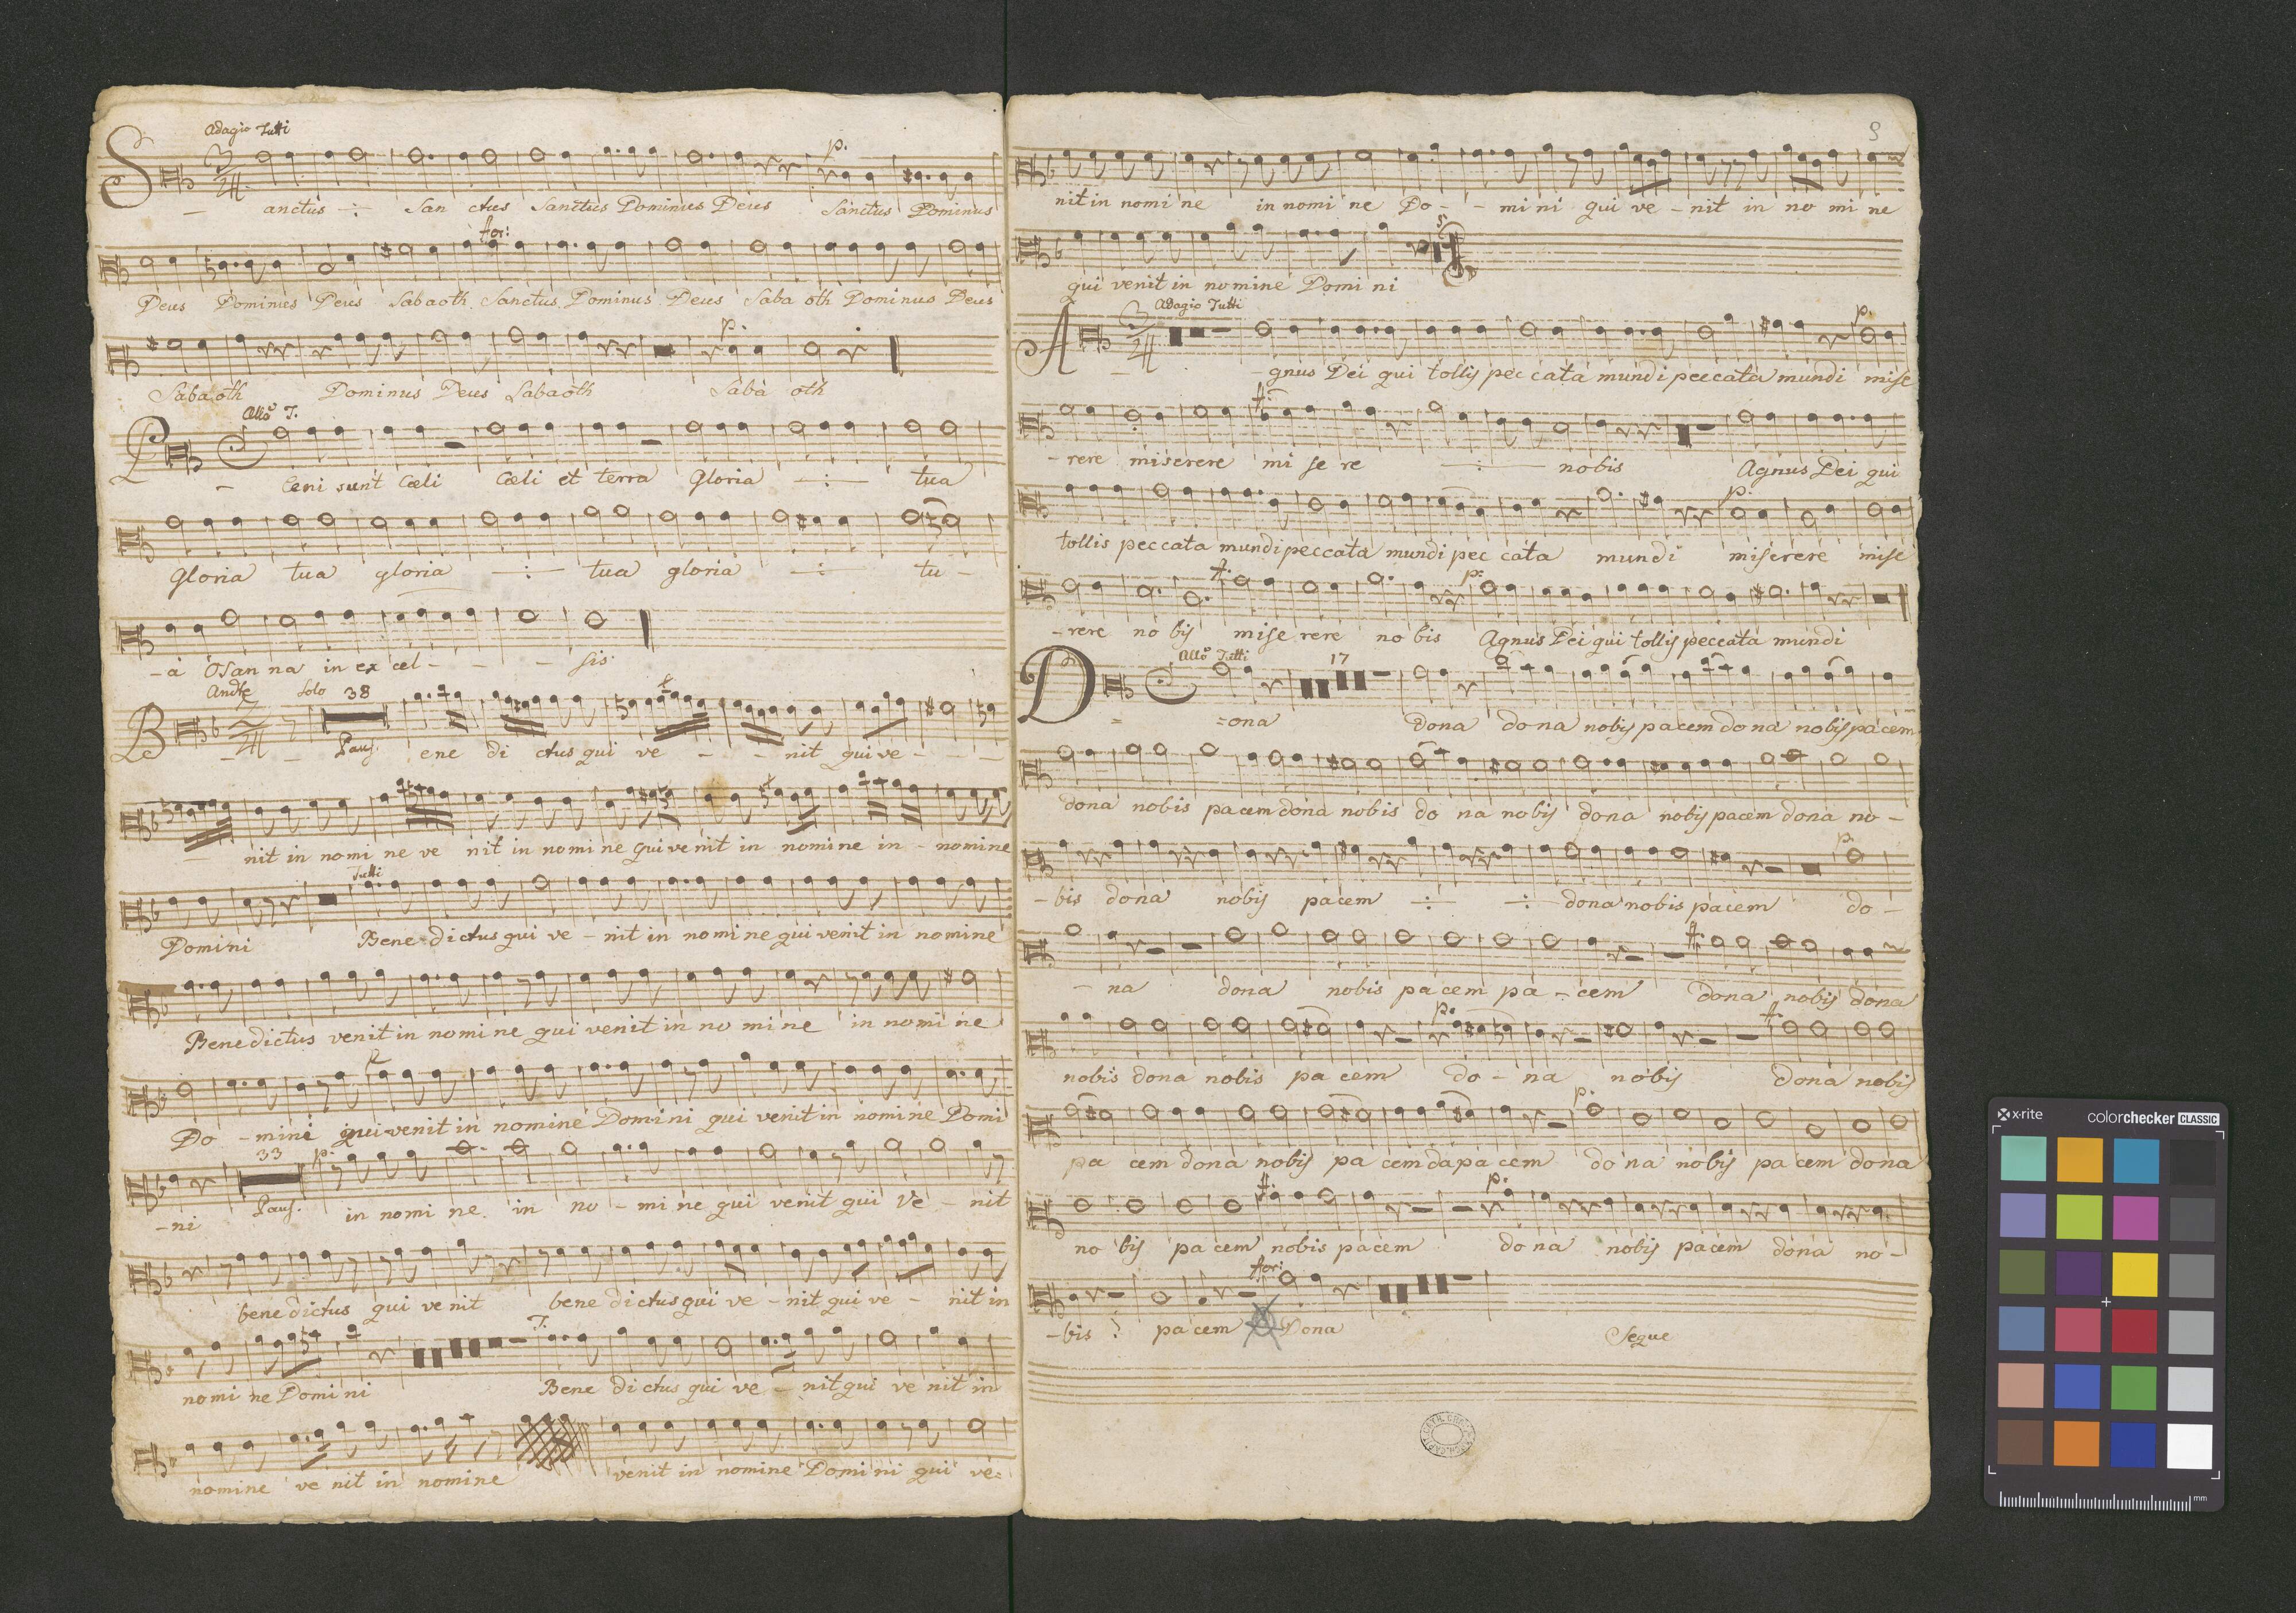 Adagio Tutti
p.
S - anctus -:- San ctus Sanctus Dominus Deus Sanctus Dominus
for:
Deus Dominus Deus Sabaoth Sanctus Dominus Deus Saba oth Dominus Deus
p.
Sabaoth Dominus Deus Sabaoth Saba oth
Allo T.
P - leni sunt Cœli Cœli et terra Gloria -:- tua
Gloria tua gloria -:- tua gloria -:- tu -
- a Osan na in ex cel - - - sis.
Andte Solo 38
B - - Paus. ene di ctus qui ve - - - nit qui ve - - -
- nit in nomi ne ve nit in nomi ne qui ve nit in nomine in - nomine
Tutti
Domini Bene - dictus qui ve - nit in nomi ne qui venit in nomine
Benedictus venit in nomi ne qui venit in no mi ne in nomi ne
Do - mini qui venit in nomine Domi ni qui venit in nomi ne Domi
33 p.
- ni Paus. in nomi ne in no - mi ne qui venit qui ve - nit
bene dictus qui ve nit bene dictus qui ve - nit qui ve - nit in
T.
nomi ne Domi ni Bene dictus qui ve - nit qui ve nit in
nomine ve nit in nomine venit in nomine Domi ni qui ve=
3
nit in nomi ne in nomi ne Do - - mi ni qui ve - nit in no mi ne
qui venit in nomine Domi ni
Adagio Tutti
p.
A - - gnus Dei qui tollis pec cata mundi peccata mundi mise
f.
- rere miserere mi se re -:- nobis Agnus Dei qui
p.
tollis peccata mundi peccata mundi pec cata mundi miserere mise
f. p.
- rere no bis mise rere no bis Agnus Dei qui tollis peccata mundi
Allo Tutti 17
D = =ona Dona do na nobis pacem do na nobis pacem
dona nobis pacem dona nobis do na nobis dona nobis pacem dona no -
p.
- bis dona nobis pacem -:- -:- dona nobis pacem do -
f.
- na dona nobis pa cem pa - cem dona nobis dona
p. f.
nobis dona nobis pa cem do - na nobis dona nobis
p.
pa cem dona nobis pa cem da pa cem do na nobis pa cem dona
f. p.
no bis pa cem nobis pacem do na nobis pacem dona no -
for:
- bis pa cem Dona Segue
x-rite colorchecker CLASSIC
mm